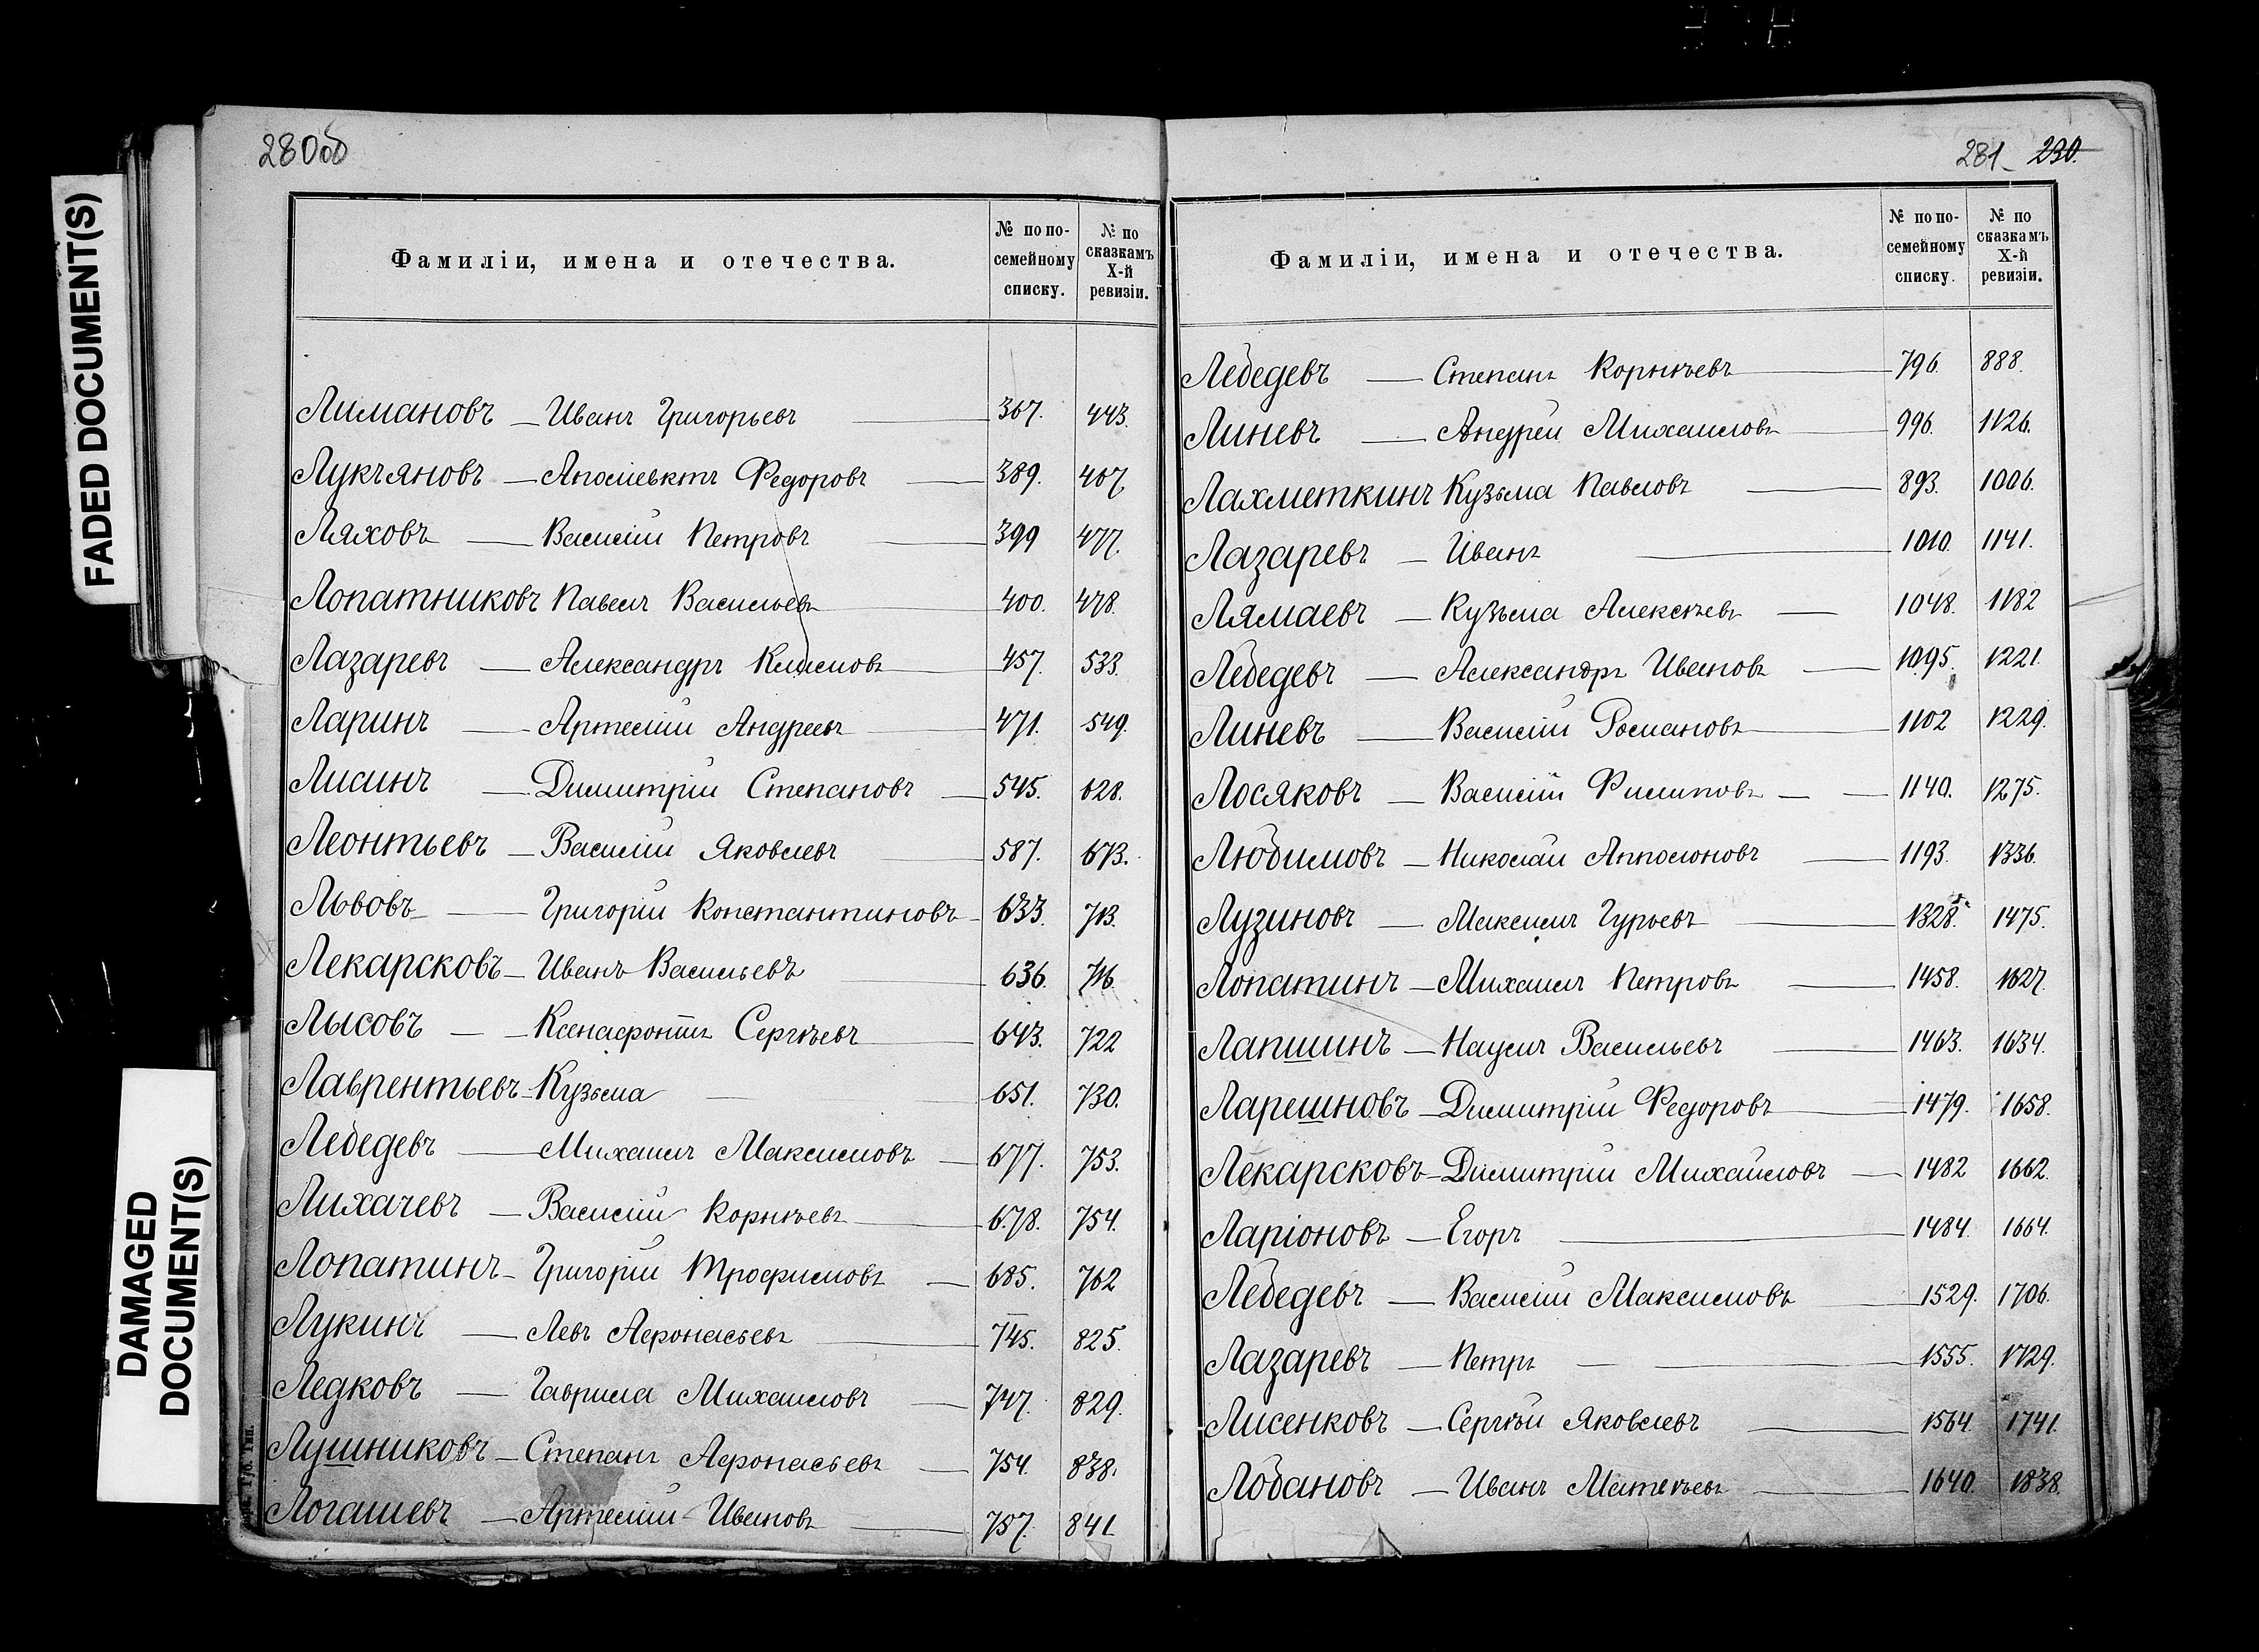 280об
Фамиліи, имена и отечества.
№ по по-
семейному
списку.
№ по
сказкамъ
X-й
ревизіи.
Лимановъ — Иванъ Григорьевъ — 367. 443.
Лукъяновъ — Федоровъ — 389. 467
Ляховъ — Василій Петровъ — 399 477.
Лопатниковъ Павелъ Васильевъ — 400. 478.
Лазаревъ — Александръ Климовъ — 457. 533.
Ларинъ — Артемій Андреевъ — 471. 549.
Лисинъ — Димитрій Степановъ — 545. 628.
Леонтьевъ — Василій Яковлевъ — 587. 673.
Львовъ — Григорій Константиновъ — 633. 713.
Лекарсковъ — Иванъ Васильевъ — 636. 716.
Лысовъ — Ксенафонтъ Сергѣевъ — 643. 722
Лаврентьевъ — Кузьма — 651. 730.
Лебедевъ — Михаилъ Максимовъ — 677. 753.
Лихачевъ — Василій Корнѣевъ — 678. 754.
Лопатинъ — Григорій Трофимовъ — 685. 762
Лукинъ — Левъ Афонасьевъ — 745. 825.
Ледковъ — Гаврила Михаиловъ — 747. 829.
Лушниковъ — Степанъ Афонасьевъ — 754. 838.
Логашевъ — Артемій Ивановъ — 757. 841.
281 230.
Фамиліи, имена и отечества.
№ по по-
семейному
списку.
№ по
сказкамъ
X-й
ревизіи.
Лебедевъ — Степанъ Корнѣевъ — 796. 888.
Линевъ — Андрей Михаиловъ — 996. 1126.
Лахметкинъ Кузьма Павловъ — 893. 1006.
Лазаревъ — Иванъ — 1010. 1141.
Лямаевъ — Кузьма Алексѣевъ — 1048. 1182
Лебедевъ — Александръ Ивановъ — 1095. 1221.
Линевъ — Василій Романовъ — 1102 1229.
Лосяковъ — Василій Филиповъ — 1140. 1275.
Любимовъ — Николай Апполоновъ — 1193. 1336.
Лузиновъ — Максимъ Гурьевъ — 1328. 1475.
Лопатинъ — Михаилъ Петровъ — 1458. 1627.
Лапшинъ — Наумъ Васильевъ — 1463. 1634.
Ларешновъ — Димитрій Федоровъ — 1479. 1658.
Лекарсковъ — Димитрій Михайловъ — 1482 1662.
Ларіоновъ — Егоръ — 1484. 1664.
Лебедевъ — Василій Максимовъ — 1529. 1706.
Лазаревъ — Петръ — 1555. 1729.
Лисенковъ — Сергѣй Яковлевъ — 1564. 1741.
Лобановъ — Иванъ Матвѣевъ — 1640. 1838.
FADED DOCUMENT(S)
DAMAGED
DOCUMENT(S)